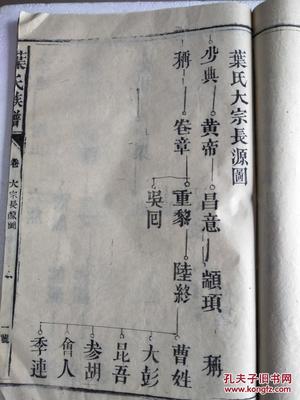 葉氏大宗長源圖
少典 黃帝 昌意 顓頊 稱
稱 卷章 重黎 陸終
吳回
曹姓
大彭
昆吾
參胡
會人
季連
葉氏族譜
卷 大宗長源圖
一號